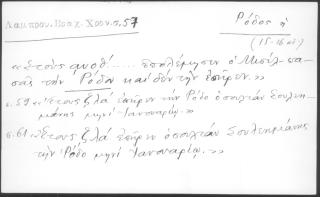 Λαμπρου. Βραχ. Χρον. σ. 57
Ρόδος ἡ
(15-16 αἰ.)
«Ἔτους ͵αυοθ΄ .... ἐπολέμησεν ὁ Μεσίλ-πα-
σᾶς τὴν Ῥόδον καὶ δὲν τὴν ἐπῆρεν.»
σ. 59 «Ἔτους ζλα ἐπῆρεν τὴν Ῥόδο ὁ σουλτὰν Σουλεη-
μάνης μηνὶ Ἰανουαρίῳ.»
σ. 61 «Ἔτους ζλά ἐπῆρεν ὁ σουλτὰν Σουλεημάνης
τὴν Ῥόδο μηνὶ Ἰανουαρίῳ.»